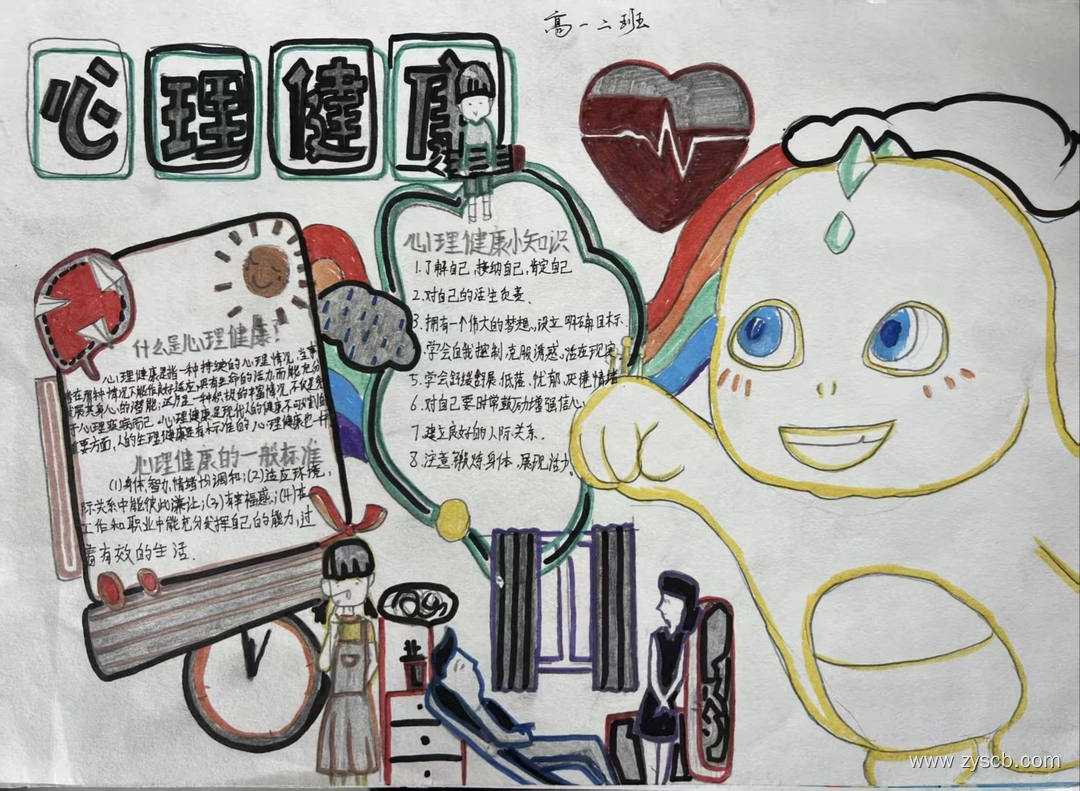 高一二班
心理健康
什么是心理健康?
心理健康是指一种持续的心理情况,当事
者在那种情况下能作良好适应,具有生命的活力,而能充分
发展其身心的潜能;这乃是一种积极的丰富情况,不仅是免
于心理疾病而已。心理健康是现代人的健康不可分割的
重要方面,人的生理健康是有标准的,心理健康也一样
心理健康的一般标准
(1)身体,智力,情绪协调和;(2)适应环境,
际关系中能彼此谦让;(3)有幸福感;(4)在
工作和职业中能充分发挥自己的能力,过
着有效的生活.
心理健康小知识
1.了解自己,接纳自己,肯定自己
2.对自己的活生负责.
3.拥有一个伟大的梦想,设立明确目标.
学会自我控制,克服诱惑,活在现实.
5.学会舒缓舒展,低落,忧郁,厌倦情绪
6.对自己要时常鼓励增强信心
7.建立良好的人际关系.
8.注意锻炼身体,展现活力
www.zyscb.com